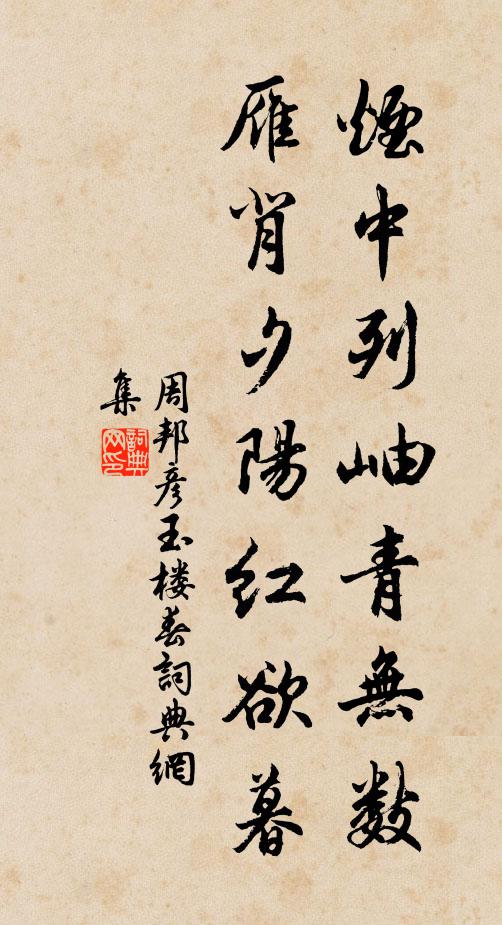 煙中列岫青無數
雁背夕陽紅欲暮
周邦彦玉楼春詞典網
集
詞典
网印